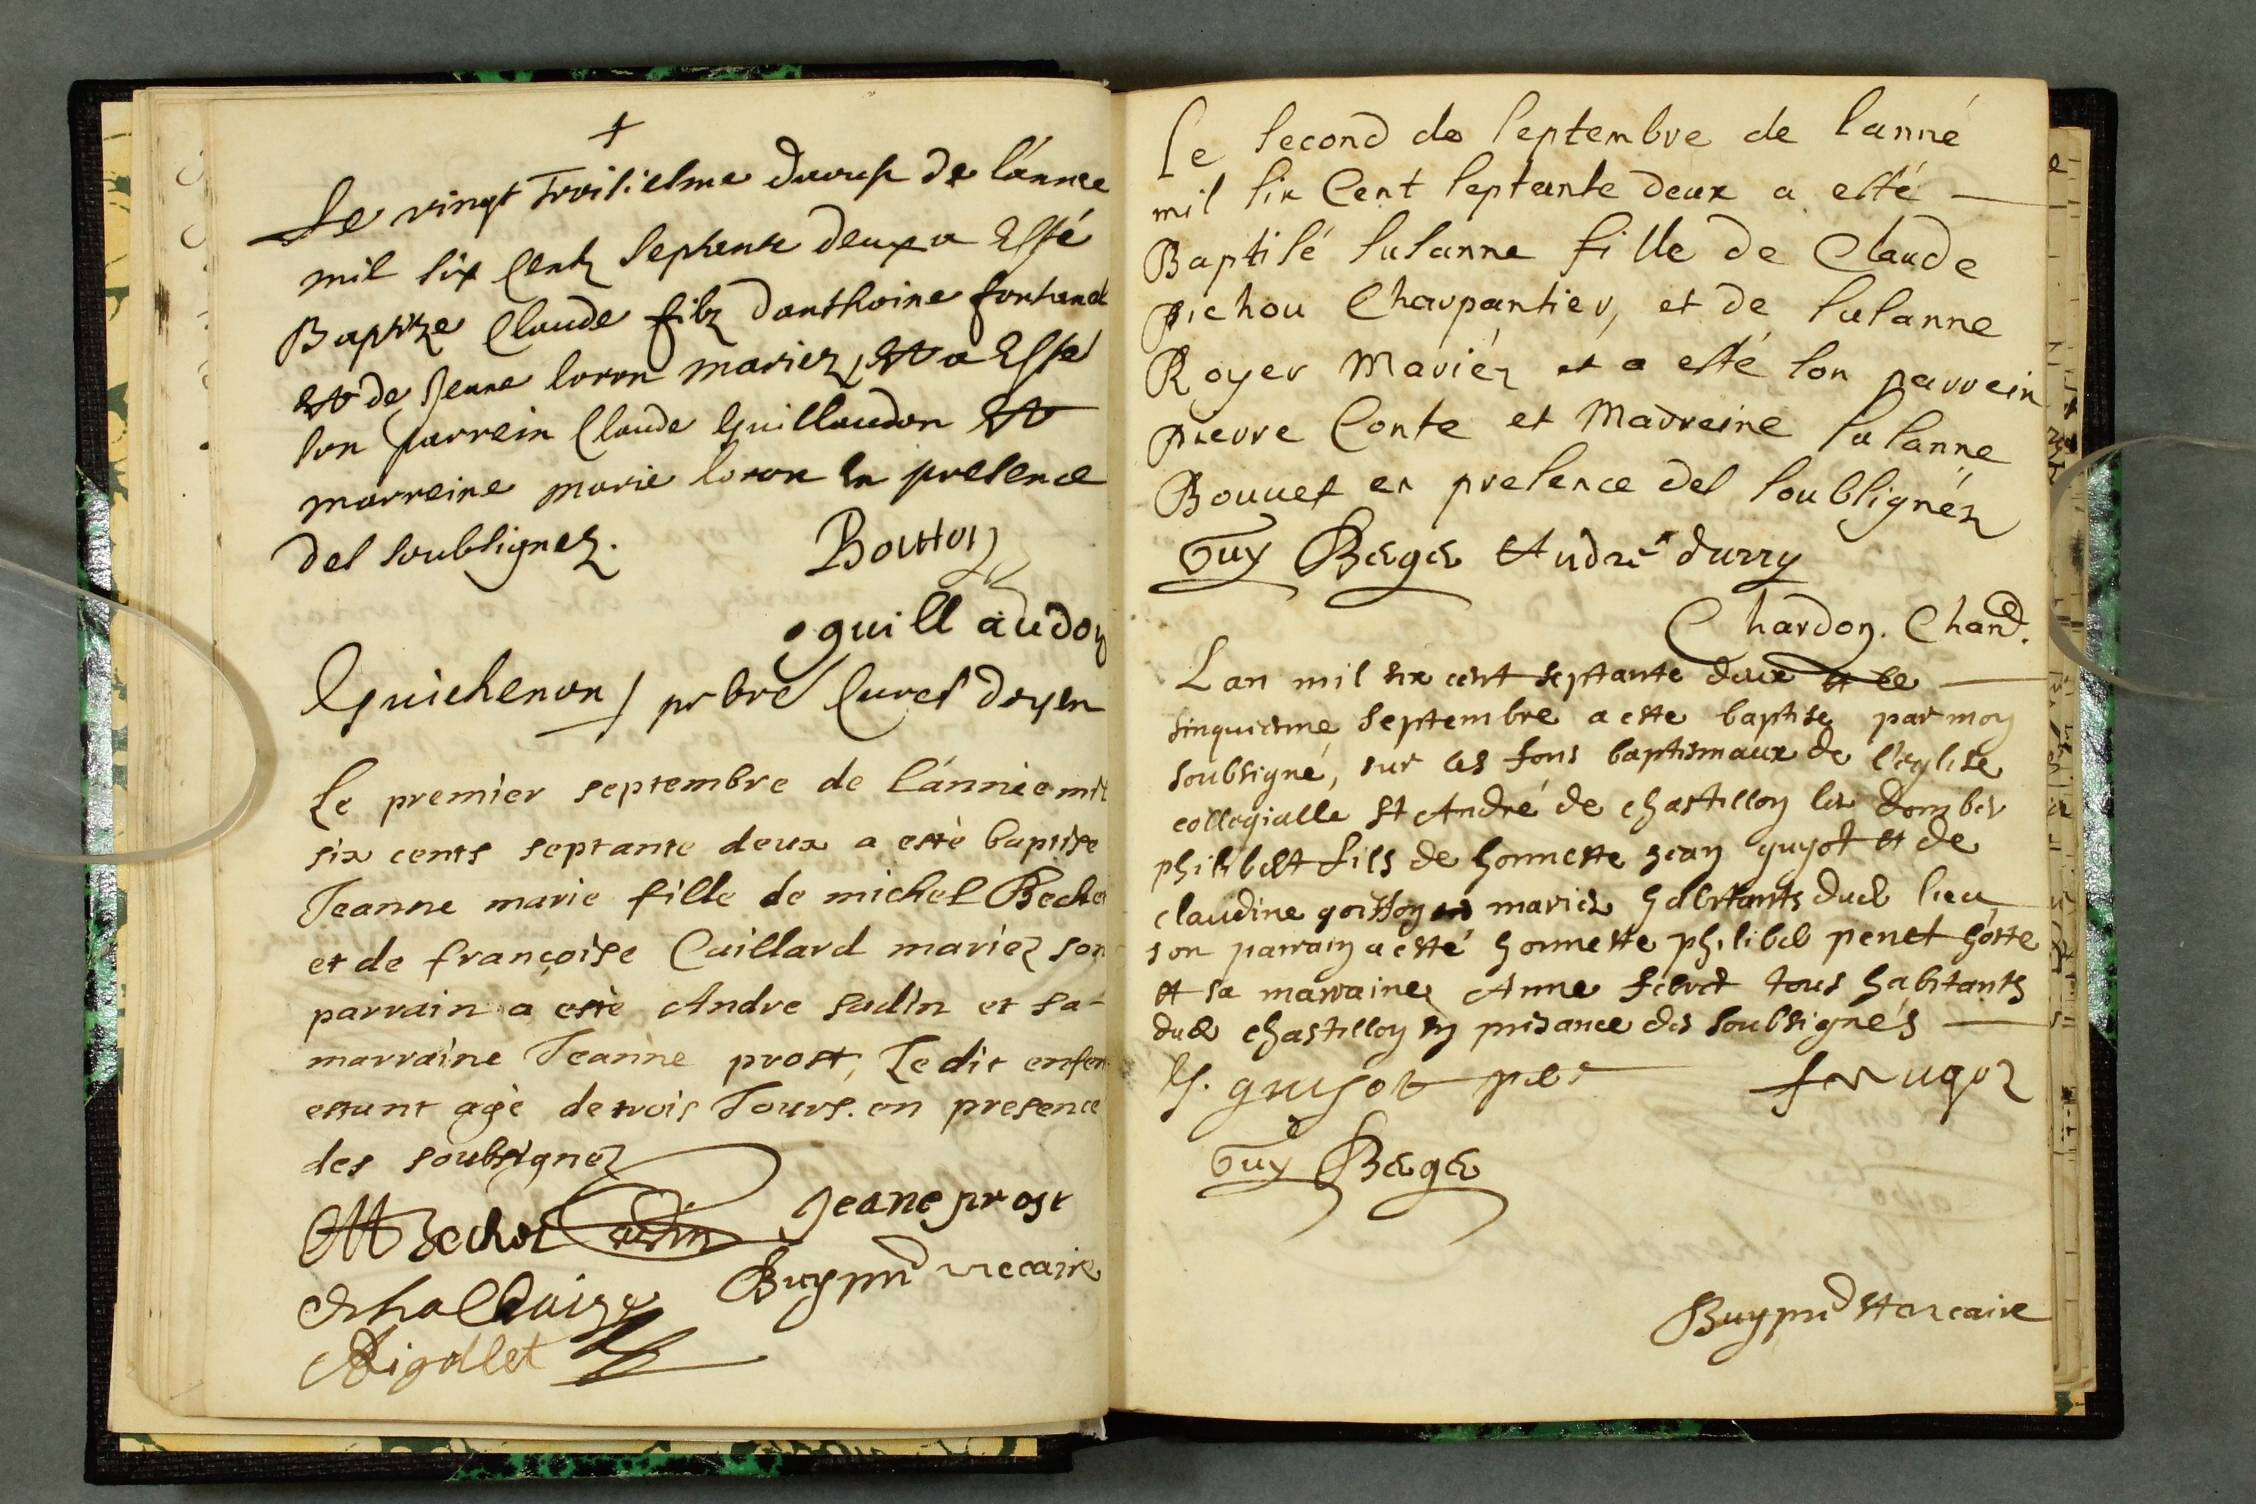 +
Le vingt Troisiesme daoust de lánnee
mil six Centz septante deux a Esté
Baptize Claude filz danthoine fontanel
Et de Jeane loron mariez, Et a Esté
son parrein Claude Guillaudon Et
marreine marie loron En presence
des soubsignez.
Botton
guillaudon
Guichenon pbre Curé doyen
Le premier septembre de lánnée mil
six cents septante deux a esté baptise
Jeanne marie fille de michel Bechet
et de françoise Caillard mariez son
parrain a esté Andre sudin et sa
marraine Jeanne prost, Ledit enfan
estant agé de trois Jours. en presence
des soubsignez
M Bechet sudin Jeane prost
Buynd viccaire
Rigollet
Le second de septembre de lanné
mil six Cent septante deux a esté
Baptisé susanne fille de Claude
pichou Charpantier, et de susanne
Royer Mariéz et a esté son parrein
pierre Conte et Madreine susanne
Bouuet en presence des soubsignéz
Guy Berger André durry
Chardon. Chan.
Lan mil six cent septante deux et le
sinquiesme septembre a este baptise par moy
soubsigné, sur les fons baptismaux de l'eglise
collegialle st André de chastillon les Dombes
philibert fils de honneste Jean guyot et de
claudine goiffon mariez habitants dud lieu
son parrain a esté honneste philibert penet hoste
et sa marraine Anne febvret tous habitants
dud chastillon en presance des soubsignés
guyot pbr
Guy Berger
Buynd viccaire